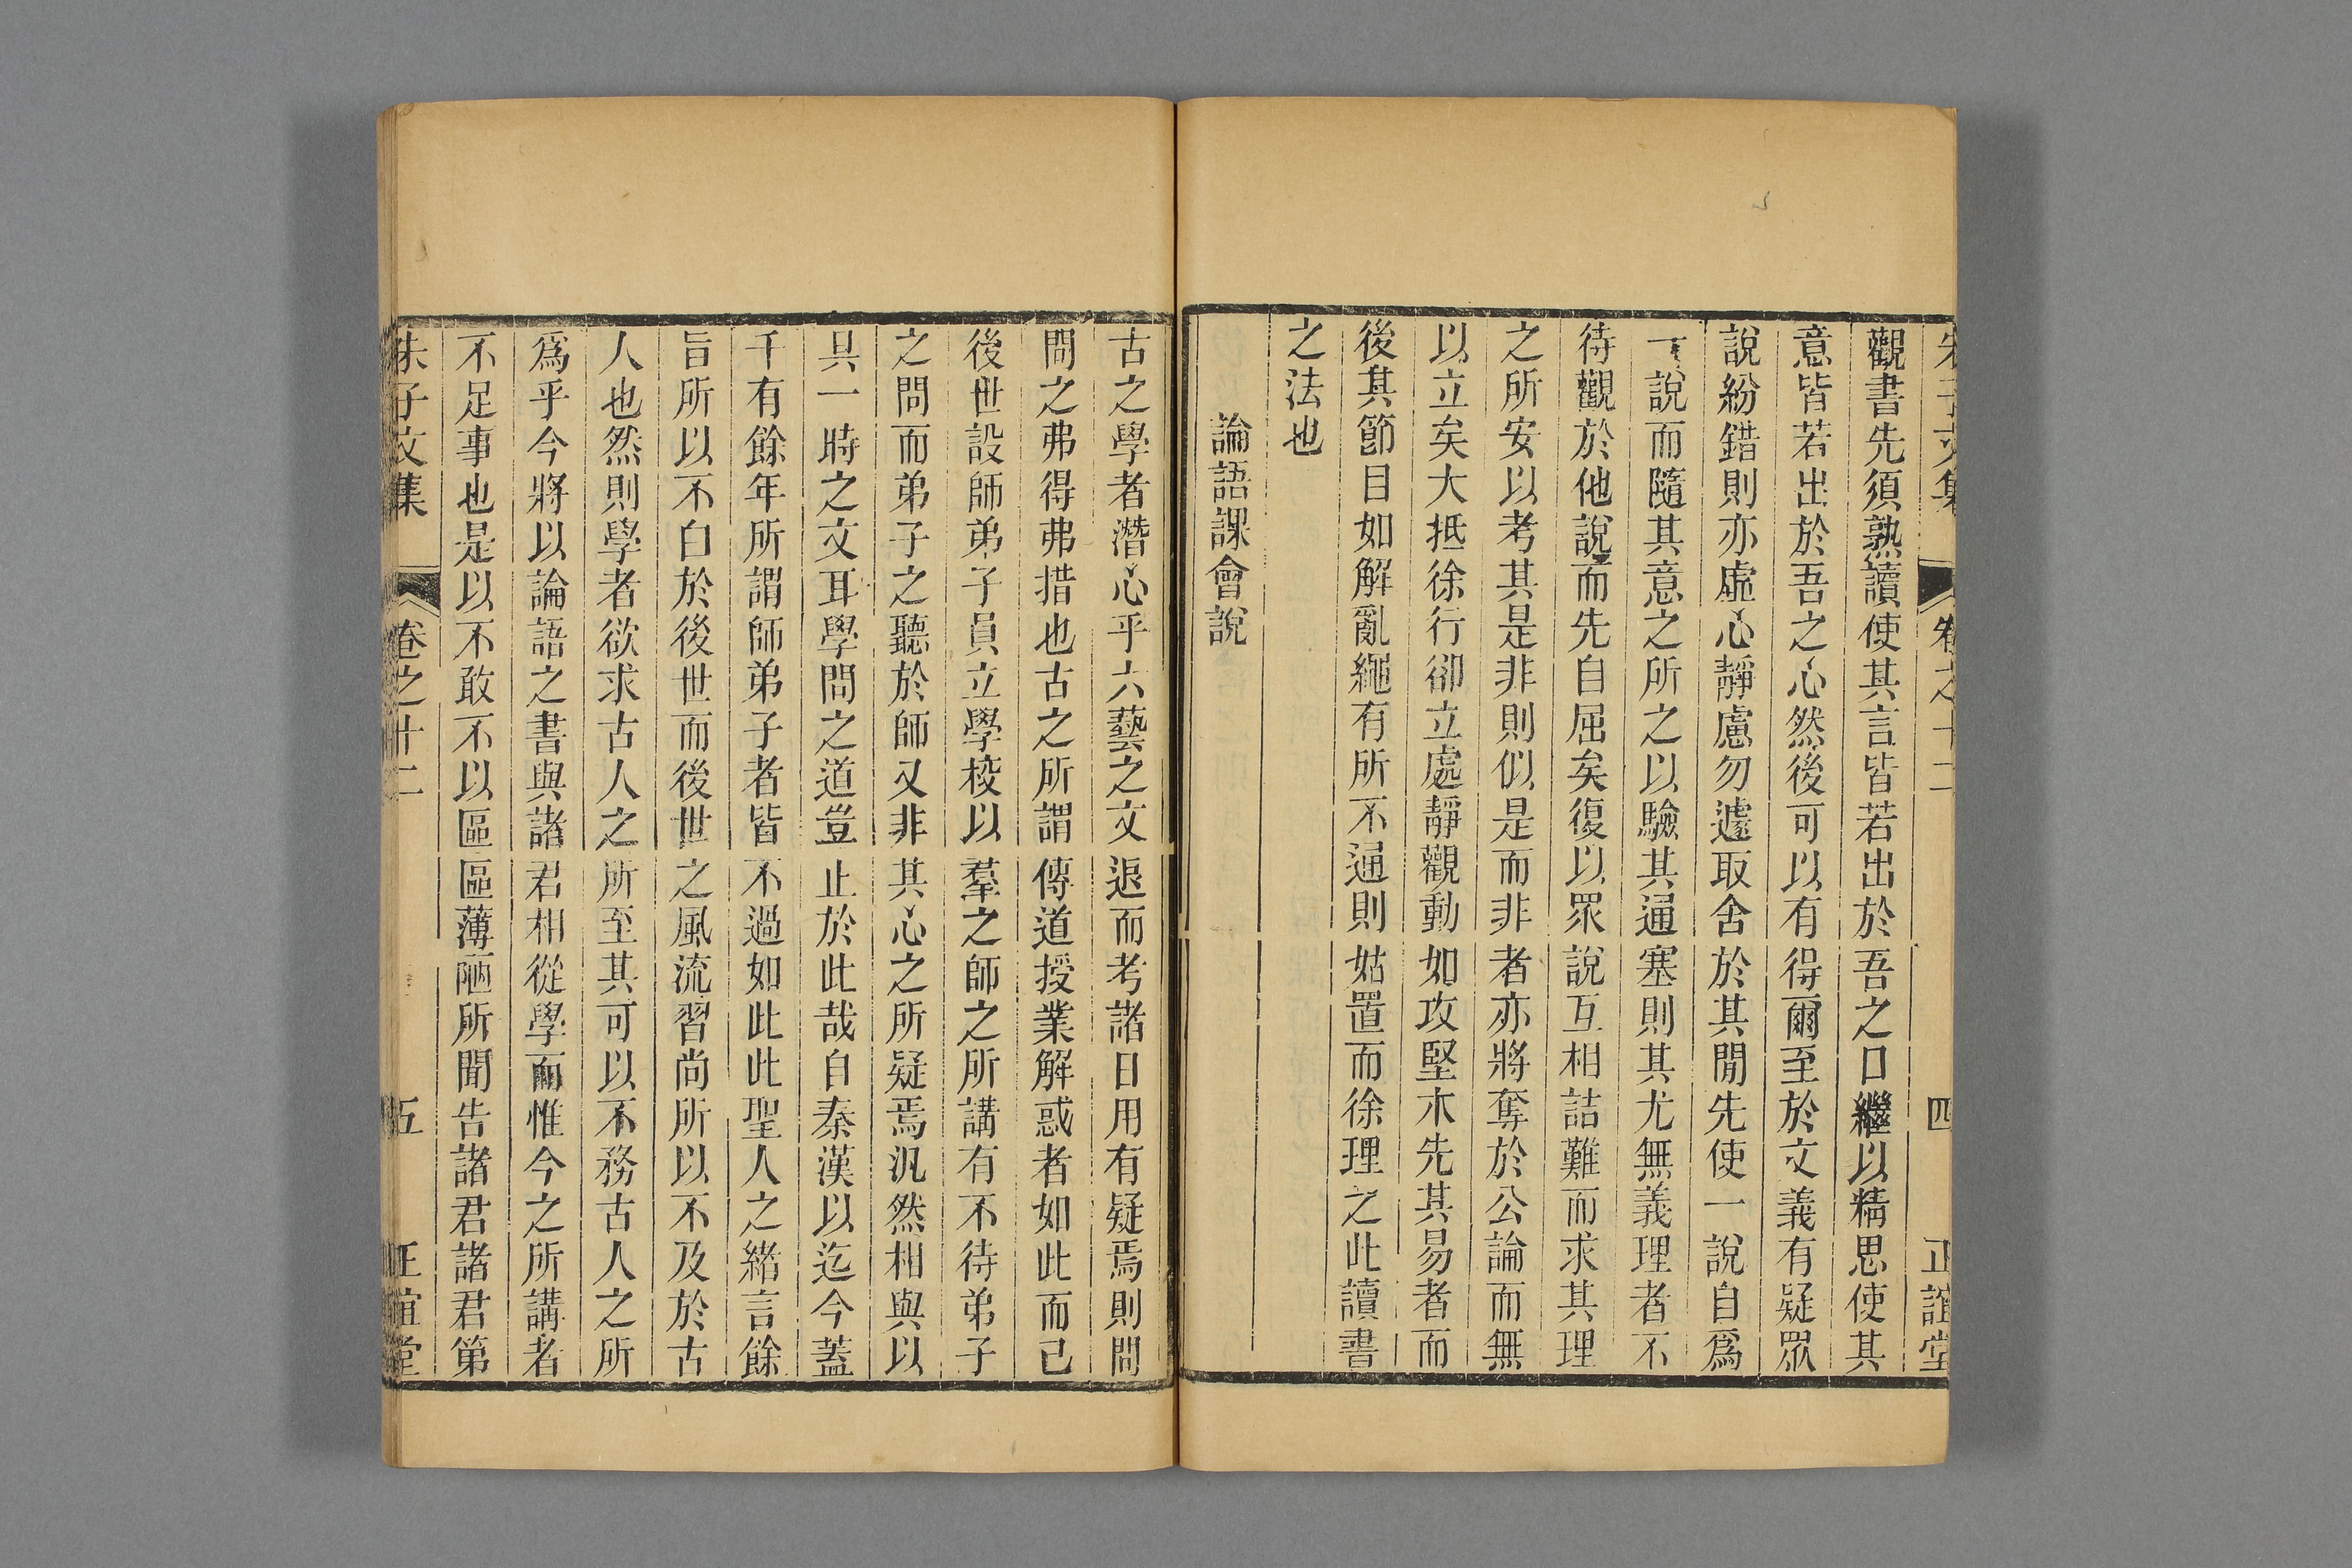 朱子文集 卷之十二 四 正誼堂
觀書先須熟讀使其言皆若出於吾之口繼以精思使其
意皆若出於吾之心然後可以有得爾至於文義有疑眾
說紛錯則亦虛心靜慮勿遽取舍於其閒先使一說自爲
一說而隨其意之所之以驗其通塞則其尤無義理者不
待觀於他說而先自屈矣復以眾說互相詰難而求其理
之所安以考其是非則似是而非者亦將奪於公論而無
以立矣大抵徐行卻立處靜觀動如攻堅木先其易者而
後其節目如解亂繩有所不通則姑置而徐理之此讀書
之法也
論語課會說
古之學者潛心乎六藝之文退而考諸日用有疑焉則問
問之弗得弗措也古之所謂傳道授業解惑者如此而已
後世設師弟子員立學校以羣之師之所講有不待弟子
之問而弟子之聽於師又非其心之所疑焉汎然相與以
具一時之文耳學問之道豈止於此哉自秦漢以迄今蓋
千有餘年所謂師弟子者皆不過如此此聖人之緒言餘
旨所以不白於後世而後世之風流習尚所以不及於古
人也然則學者欲求古人之所至其可以不務古人之所
爲乎今將以論語之書與諸君相從學而惟今之所講者
不足事也是以不敢不以區區薄陋所聞告諸君諸君第
朱子文集 卷之十二 五 正誼堂